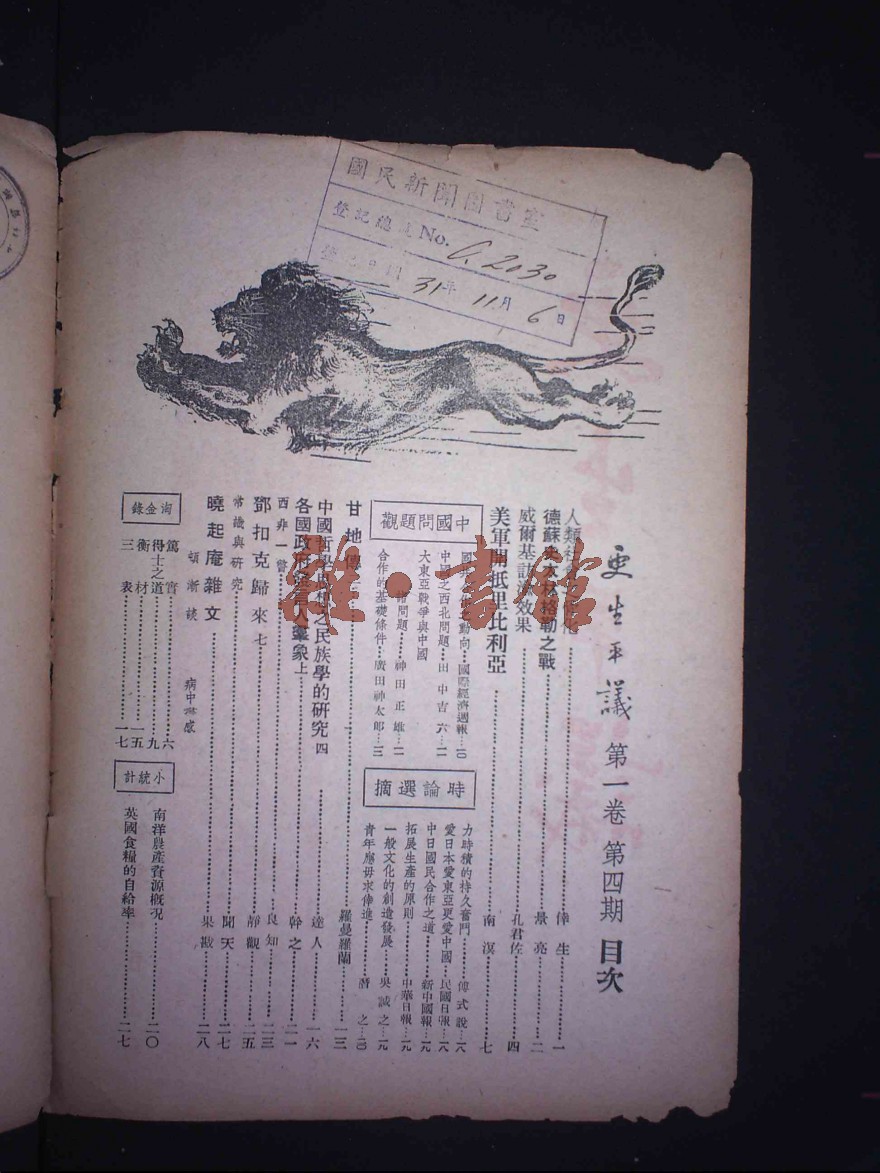 國民新聞圖書室
登記總 No. G.2030
31年 11月 6日
更生平議 第一卷 第四期 目次
人類 倖生 一
德蘇 格勒之戰 景亮 二
威爾基訪 效果 孔君佐 四
美軍開抵里比利亞 南溟 七
中國問題觀
動向 國際經濟週報 一〇
中國之西北問題 田中吉六 一一
大東亞戰爭與中國
諸問題 神田正雄 一二
合作的基礎條件 廣田神太郎 一三
時論選摘
力時積的持久奮鬥 傅式說 一八
愛日本愛東亞更愛中國 民國日報 一八
中日國民合作之道 新中國報 一九
拓展生產的原則 中華日報 一九
一般文化的創造發展 吳誠之 一九
青年應毋求倖進 曆之 二〇
甘地傳 羅曼羅蘭 一三
中國哲學思想之民族學的研究 四 達人 一六
各國政府發言人羣象 上 幹之 二一
西非 瞥 良知 二三
鄧扣克歸來 七 靜觀 二五
常識與研究 聞天 二七
曉起庵雜文 果厰 二八
頓漸談 病中 感
淘金錄
篤實 六
得士之道 九
衡材 一五
三表 一七
小統計
南洋農產資源概況 二〇
英國食糧的自給率 二七
雜·書館